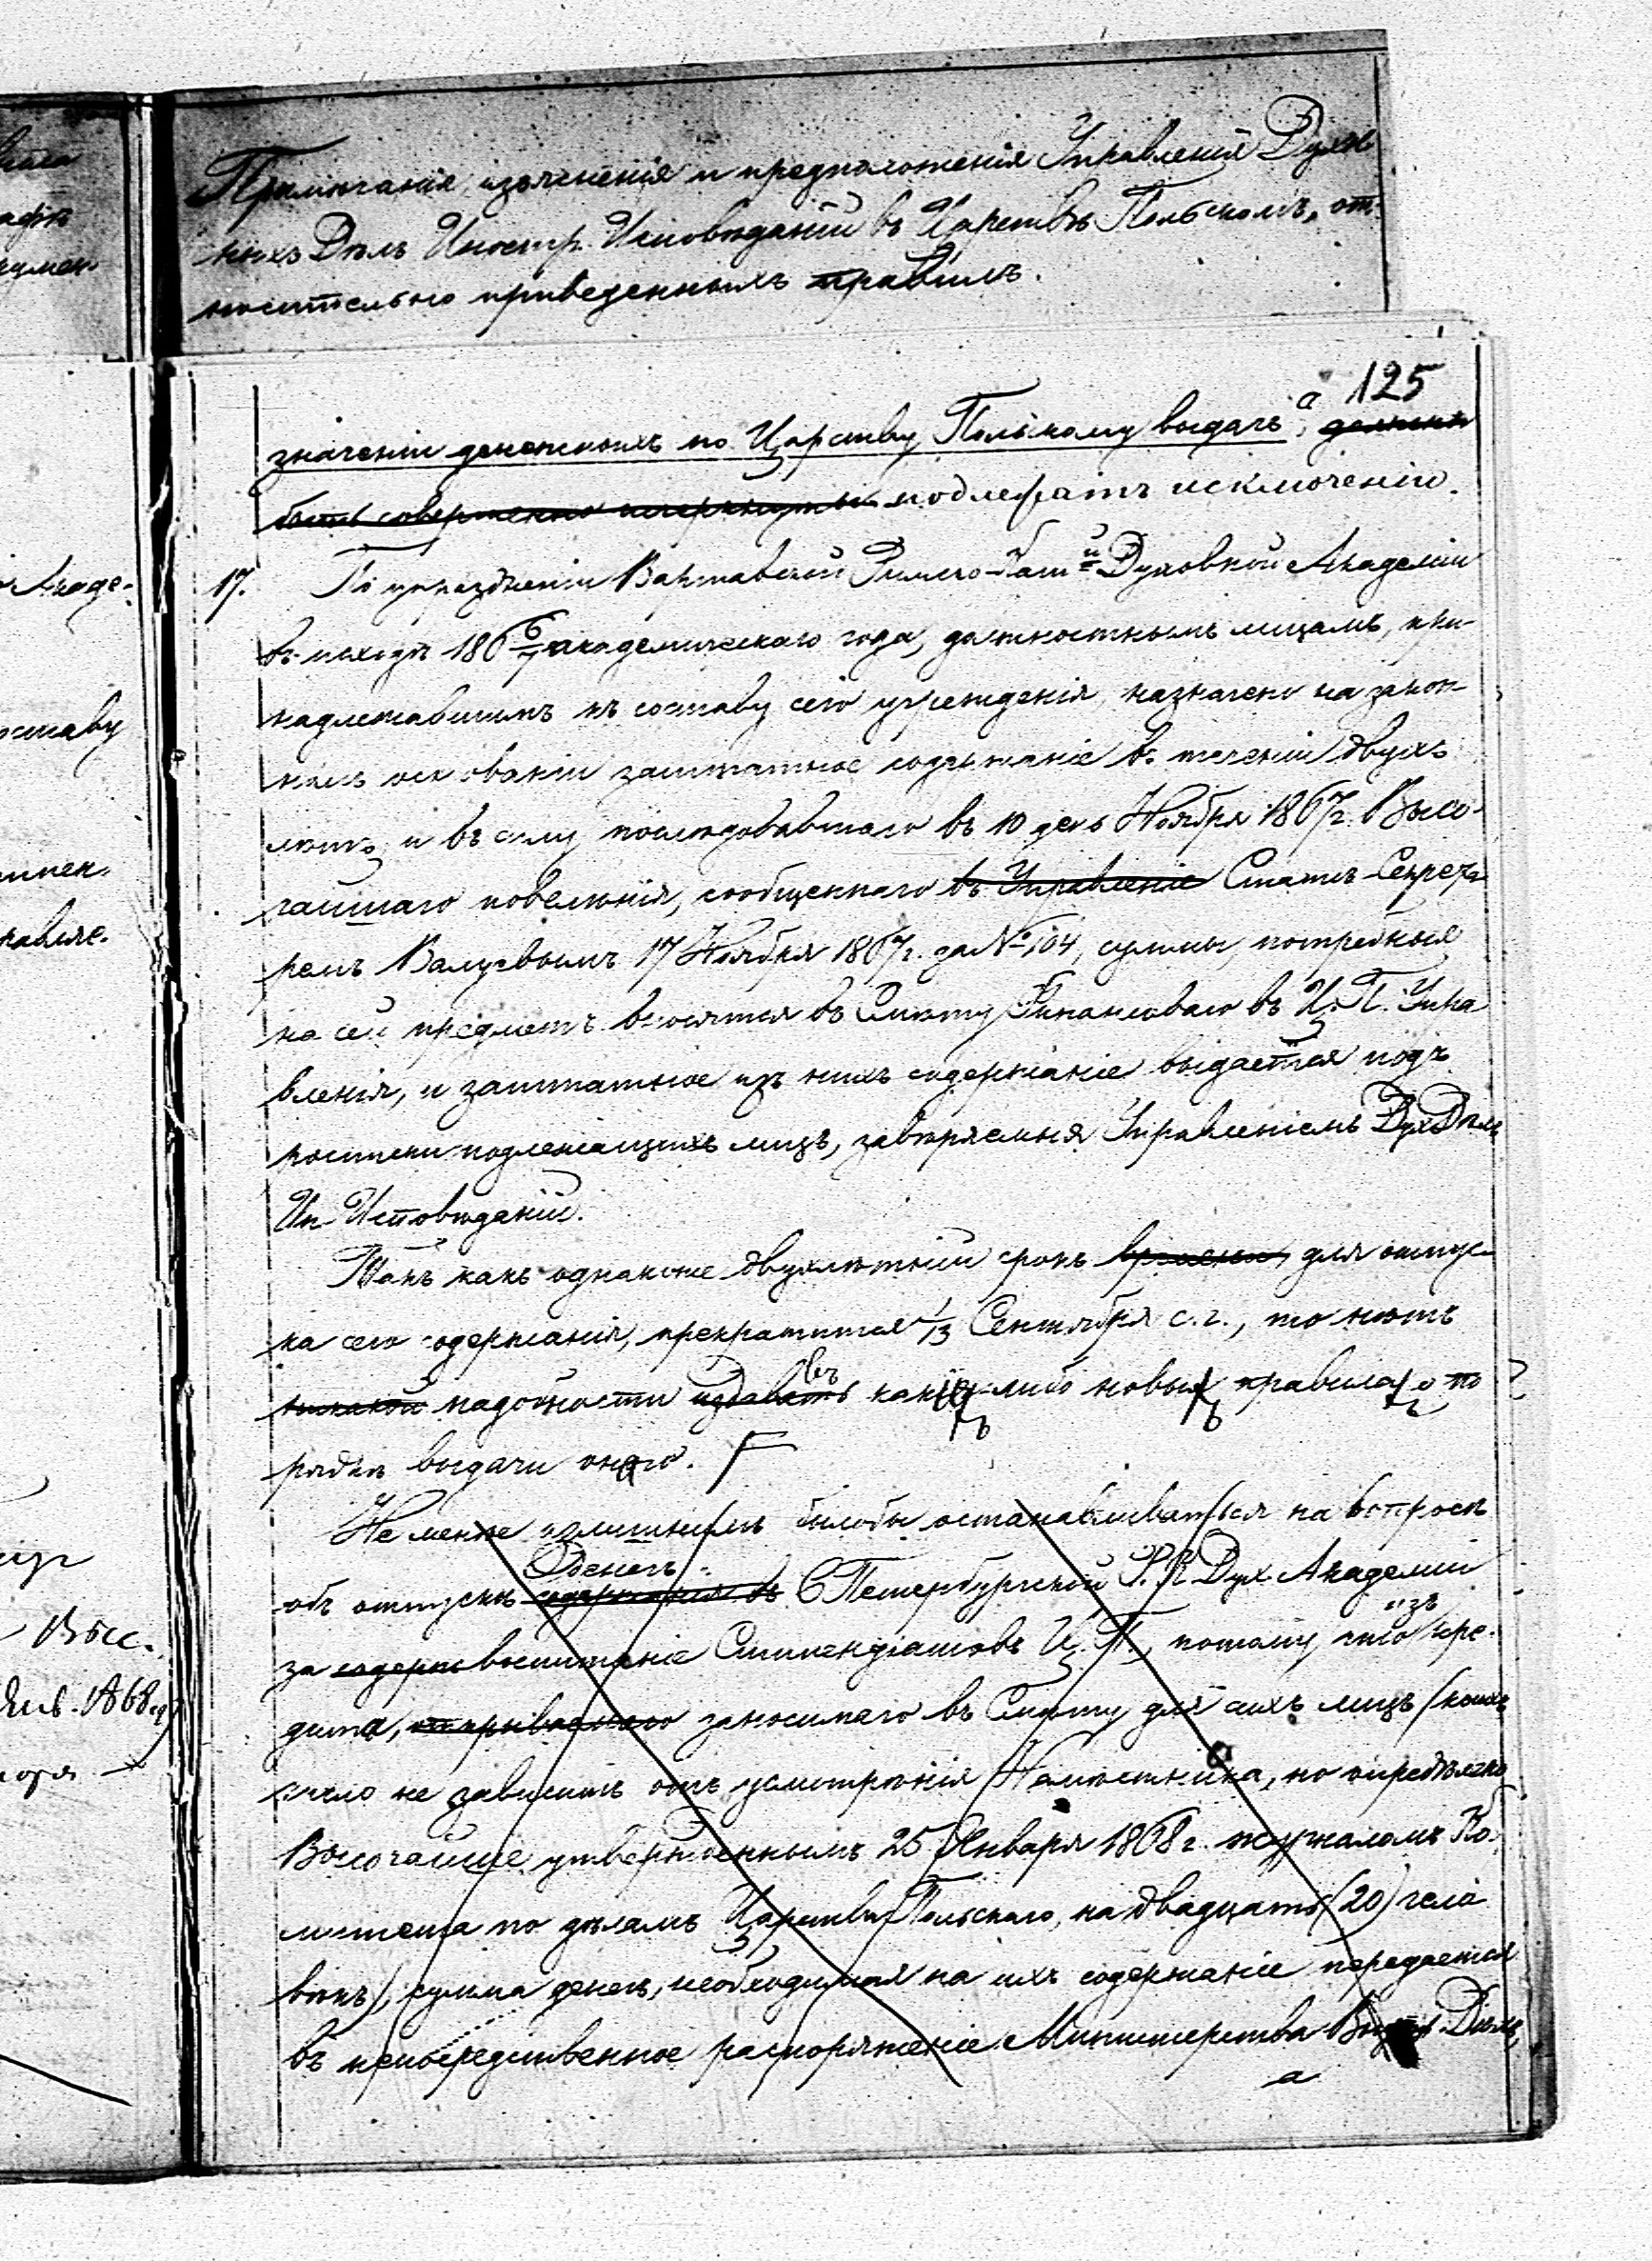 Примечанія, изъясненія и предположенія Управленія Духов-
ныхъ Дѣлъ Иностр. Исповѣданій въ Царствѣ Польскомъ, от-
носительно приведенныхъ правилъ.
125
значеніи денежныхъ по Царству Польскому выдачъ, а должны
быть совершенно исчеркнуты подлежатъ исключенію.
17. По упраздненіи Варшавской Римско-Кат-й Духовной Академіи
въ исходѣ 186 6/7 академическаго года, должностнымъ лицамъ, при-
надлежавшимъ къ составу сего учрежденія, назначено на закон-
номъ основаніи заштатное содержаніе въ теченіи двухъ
лѣтъ, и въ силу послѣдовавшаго въ 10 день Ноября 1867 г. Высо-
чайшаго повелѣнія, сообщеннаго въ Управленіе Статсъ-Секрета-
ремъ Валуевымъ 17 Ноября 1867 г. за № 104, суммы, потребныя
на сей предметъ вносятся въ Смѣту Финансоваго въ Ц. П. Упра-
вленія, и заштатное изъ нихъ содержаніе выдается подъ
росписки подлежащихъ лицъ, завѣряемыя Управленіемъ Дух. Дѣлъ
Ин. Исповѣданій.
Такъ какъ однакоже двухлѣтній срокъ времени для отпус-
ка сего содержанія, прекратится 1/13 Сентября с. г., то нѣтъ
никакой надобности издавать въ какихъ-либо новыхъ правилахъ о по-
рядкѣ выдачи онаго.
Не менѣе излишнимъ было бы останавливаться на вопросѣ
объ отпускѣ содержанія въ денегъ С. Петербургской Р. К. Дух. Академіи
за содерж воспитаніе Стипендіатовъ Ц. П., потому, что изъ кре-
дита, заносимаго въ Смѣту для сихъ лицъ (коихъ
число не зависитъ отъ усмотрѣнія Намѣстника, но опредѣлено
Высочайше утвержденнымъ 25 Января 1868 г. журналомъ Ко-
митета по дѣламъ Царства Польскаго, на двадцать (20) чело-
вѣкъ), сумма денегъ, необходимая на ихъ содержаніе передается
въ непосредственное распоряженіе Министерства Внутр. Дѣлъ,
а